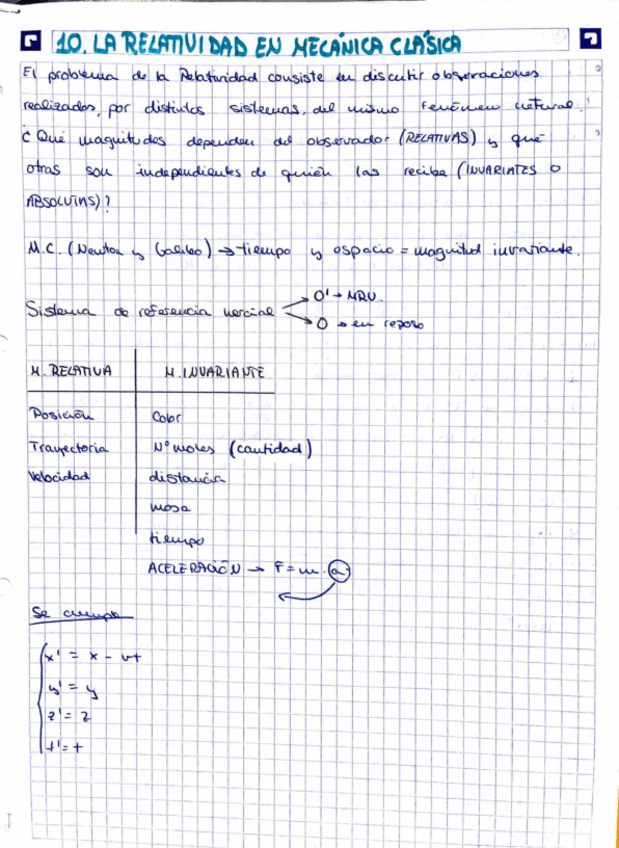 10. LA RELATIVIDAD EN MECÁNICA CLÁSICA
El problema de la Relatividad consiste en discutir observaciones
realizadas, por distintos sistemas, del mismo fenómeno natural.
¿Qué magnitudes dependen del observador (RELATIVAS) y qué
otras son independientes de quién las reciba (INVARIATES O
ABSOLUTAS)?
M.C. (Newton y Galileo) → tiempo y espacio = magnitud invariante.
Sistema de referencia inercial
O' → MRU.
O → en reposo
M. RELATIVA M. INVARIANTE
Posición Color
Trayectoria Nº moles (cantidad)
Velocidad distancia
masa
tiempo
ACELERACIÓN → F = m · a
Se cumple
x' = x - vt
y' = y
z' = z
t' = t